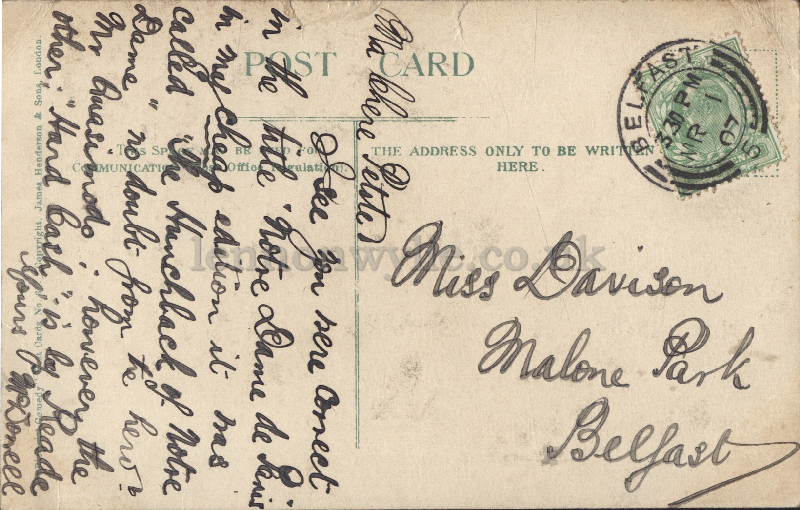 POST CARD
THIS SPACE MAY BE USED FOR
COMMUNICATION (Post Office Regulation).
THE ADDRESS ONLY TO BE WRITTEN
HERE.
BELFAST
3.30 PM
MR 1
07
Ma chere Petite
I see you were correct
in the title "Notre Dame de Paris"
in my cheap edition it was
called "The Hunchback of Notre
Dame" no doubt from the hero-
Mr Quasimodo: however the
other, "Hard Cash" is by Reade
Yours
McDowell
Miss Davison
Malone Park
Belfast
Copyright, James Henderson & Sons, London.
lennonwylie.co.uk